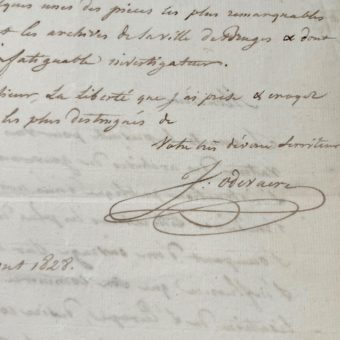 ques unes des pièces les plus remarquables
t les archives de la ville de Bruges & dont
nfatiguable investigateur.
sieur, La liberté que j'ai prise & croyez
les plus destingués de
Votre très dévoué serviteur
J. odevaere
out 1828.